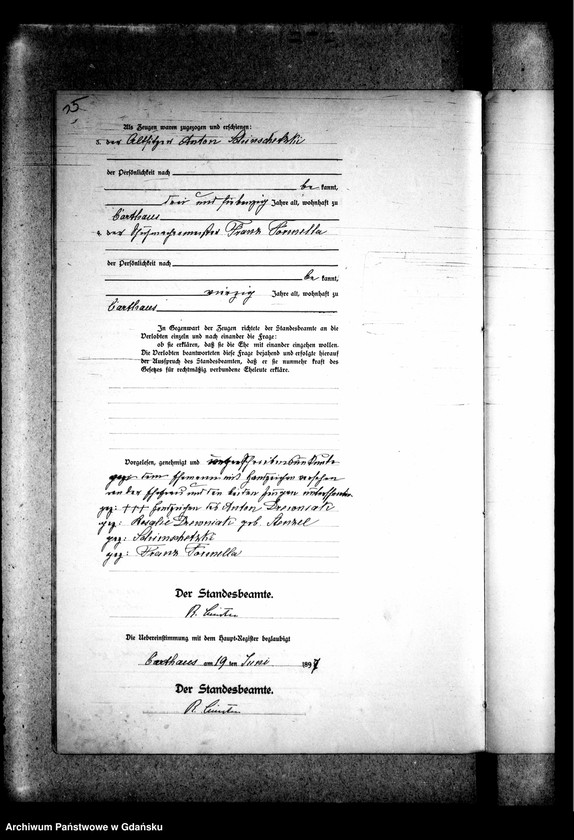 25
Als Zeugen waren zugezogen und erschienen:
3. der Altsitzer Anton
der Persönlichkeit nach
be kannt,
drei und siebenzig Jahre alt, wohnhaft zu
Carthaus
4. der Schuhmachermeister Franz Formella
der Persönlichkeit nach
be kannt,
vierzig Jahre alt, wohnhaft zu
Carthaus
In Gegenwart der Zeugen richtete der Standesbeamte an die
Verlobten einzeln und nach einander die Frage:
ob sie erklären, daß sie die Ehe mit einander eingehen wollen.
Die Verlobten beantworteten diese Frage bejahend und erfolgte hierauf
der Ausspruch des Standesbeamten, daß er sie nunmehr kraft des
Gesetzes für rechtmäßig verbundene Eheleute erkläre.
Vorgelesen, genehmigt und
Ehemann mit Handzeichen versehen
von der Ehefrau und den beiden Zeugen unterschrieben
gez: +++ Handzeichen des Anton
gez: Rosalie geb.
gez:
gez: Franz Formella
Der Standesbeamte.
Die Uebereinstimmung mit dem Haupt-Register beglaubigt
Carthaus am 19 ten Juni 1897
Der Standesbeamte.
Archiwum Państwowe w Gdańsku